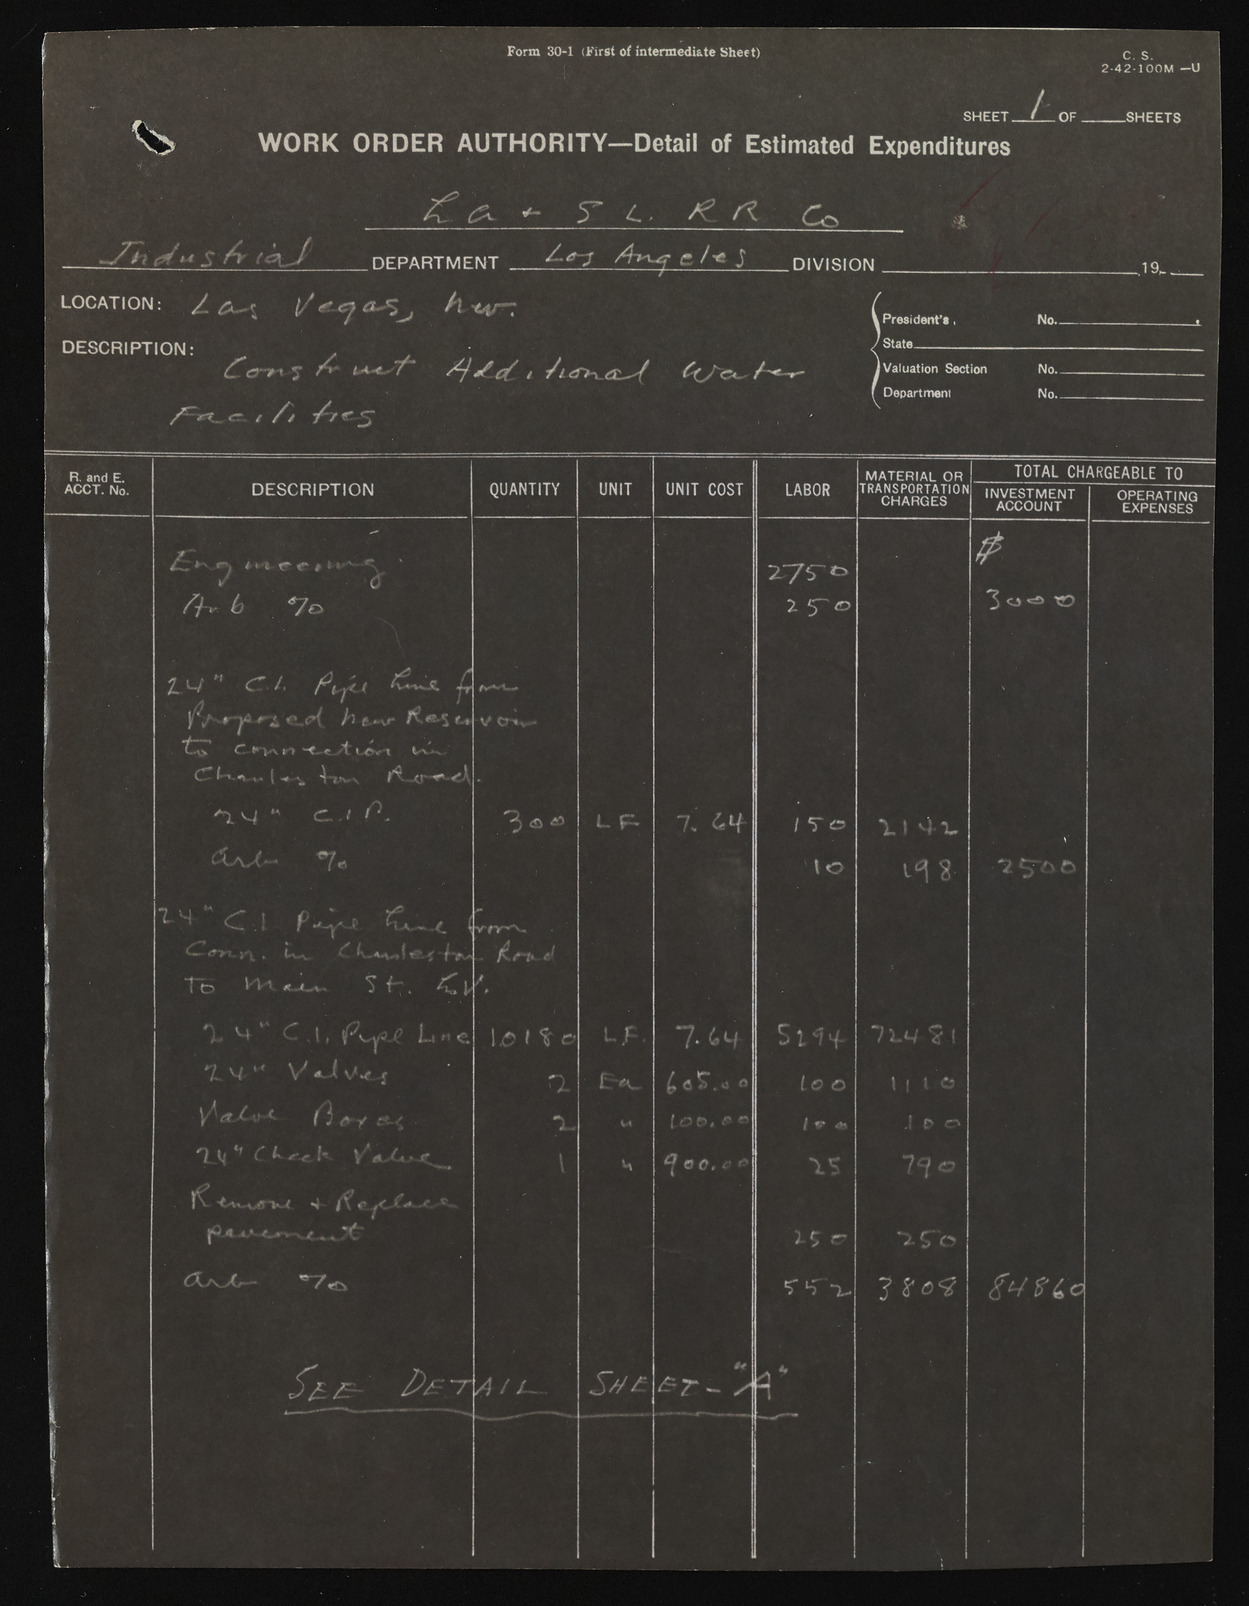 Form 30-1 (First of intermediate Sheet)
C. S.
2-42-100M —U
SHEET 1 OF ____ SHEETS
WORK ORDER AUTHORITY—Detail of Estimated Expenditures
L A & S L. R R Co
Industrial DEPARTMENT Los Angeles DIVISION ____ 19__
LOCATION: Las Vegas, Nev.
DESCRIPTION: Construct Additional Water
Facilities
President's, No.
State
Valuation Section No.
Department No.
R. and E. ACCT. No. DESCRIPTION QUANTITY UNIT UNIT COST LABOR MATERIAL OR TRANSPORTATION CHARGES TOTAL CHARGEABLE TO
INVESTMENT ACCOUNT OPERATING EXPENSES
$
Engineering 2750
Arb % 250 3000
24" C.I. Pipe Line from
Proposed New Reservoir
to connection in
Charleston Road.
24" C.I.P. 300 LF 7.64 150 2142
Arb % 10 198 2500
24" C.I. Pipe Line from
Conn. in Charleston Road
To Main St. L.V.
24" C.I. Pipe Line 10180 LF. 7.64 5294 72481
24" Valves 2 Ea 605.00 100 1110
Valve Boxes 2 " 100.00 100 100
24" Check Valve 1 " 900.00 25 790
Remove + Replace
pavement 250 250
Arb % 552 3808 84860
SEE DETAIL SHEET-"A"